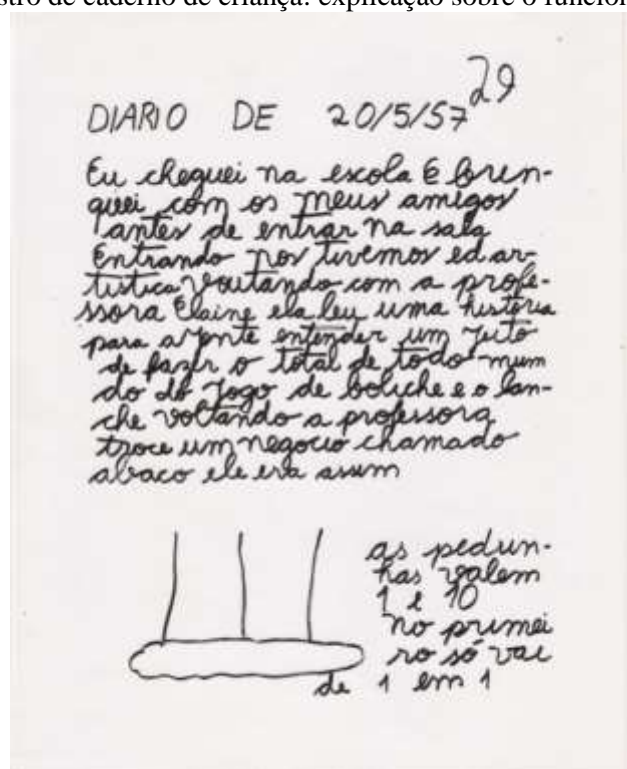 stro de caderno de criança: explicação sobre o funcion
29
DIARIO DE 20/5/57
Eu cheguei na escola E bren-
quei com os meus amigos
antes de entrar na sala
Entrando nos tivemos ed ar-
tistica voutando com a profe-
ssora Elaine ela leu uma história
para agente entender um jeito
de fazer o total de todo mum
do do jogo de boliche e o lan-
che voltando a professora
troce um negocio chamado
abaco ele era assim
as pedun-
has valem
1 e 10
no primei
ro só vai
de 1 em 1